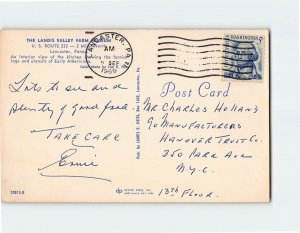 THE LANDIS VALLEY FARM MUSEUM
U. S. ROUTE 222 — 2
Lancaster, Penn
An interior view of the kitchen showing the furnish-
ings and utensils of Early American
LANCASTER, PA.
AM
SEP
1969
5¢
WASHINGTON
Lots to see and
plenty of good food.
TAKE CARE
70815-B
Post Card
Mr Charles Holland
c/o Manufacturers
Hanover Trust Co.
350 Park Ave
N.Y.C.
13th Floor.
Pub. by JAMES E. HESS, Box
dp
DEXTER PRESS, INC.
WEST NYACK, NEW YORK